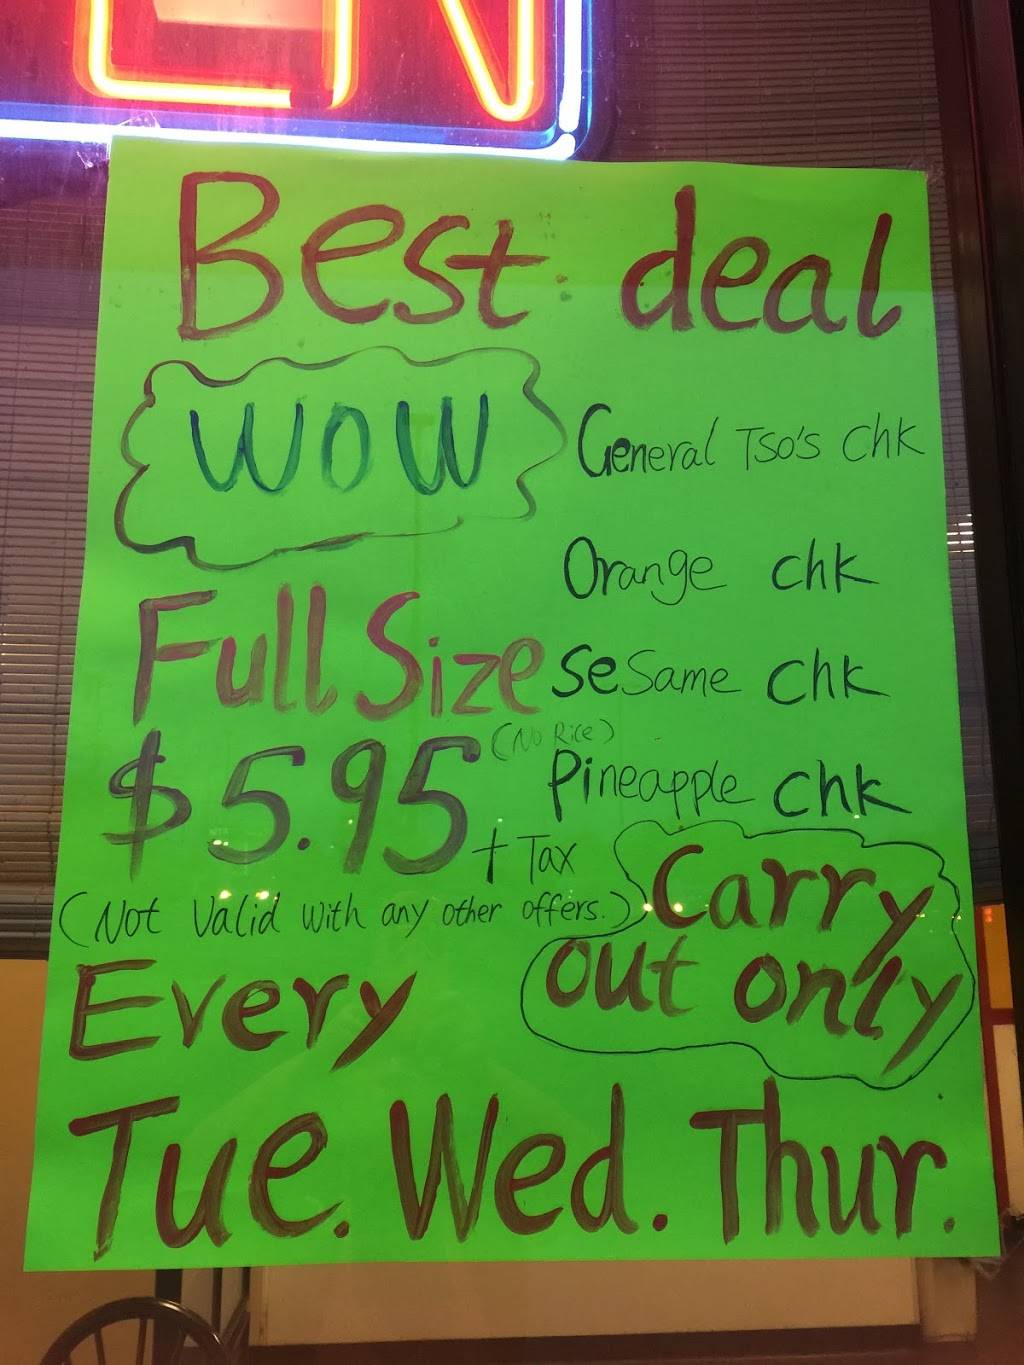 EN
Best deal
WOW
General Tso's Chk
Orange chk
Full Size
Sesame chk
(No Rice)
Pineapple chk
$5.95
+ Tax
(Not Valid with any other offers.)
Carry
out only
Every
Tue. Wed. Thur.